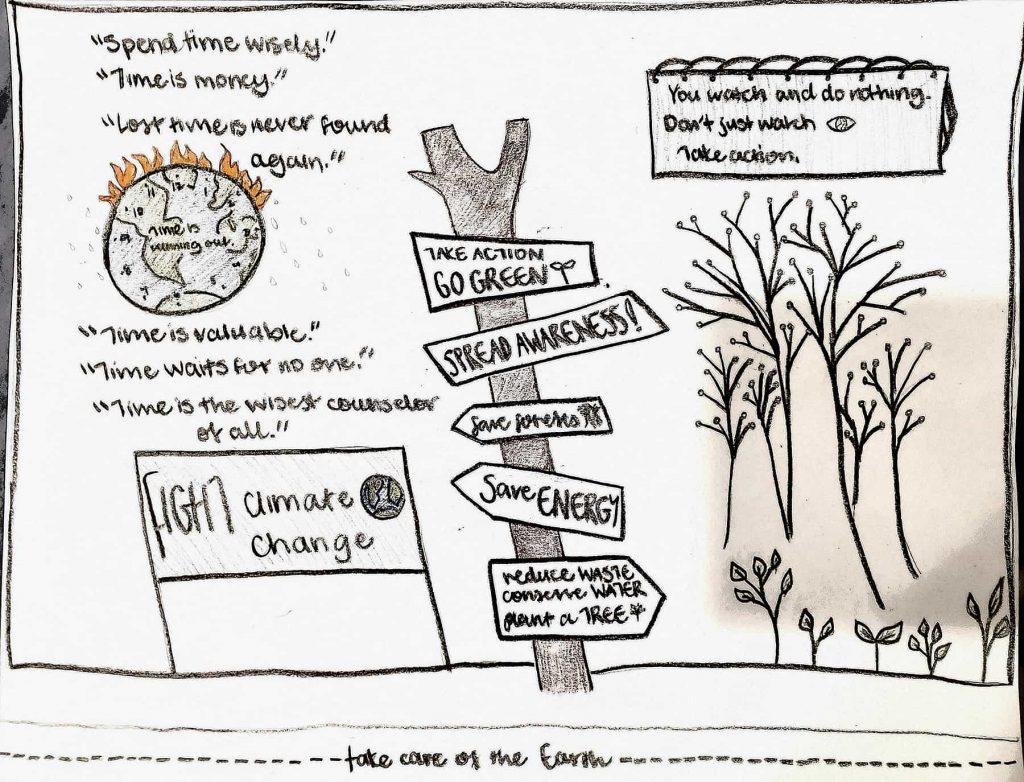 "Spend time wisely."
"Time is money."
"Lost time is never found
again."
11 12
10
Time is
running out
"Time is valuable."
"Time waits for no one."
"Time is the wisest counselor
of all."
FIGHT Climate
Change
TAKE ACTION
GO GREEN
SPREAD AWARENESS!
Save forests
Save ENERGY
reduce WASTE
conserve WATER
plant a TREE
You watch and do nothing.
Don't just watch
Take action.
take care of the Earth